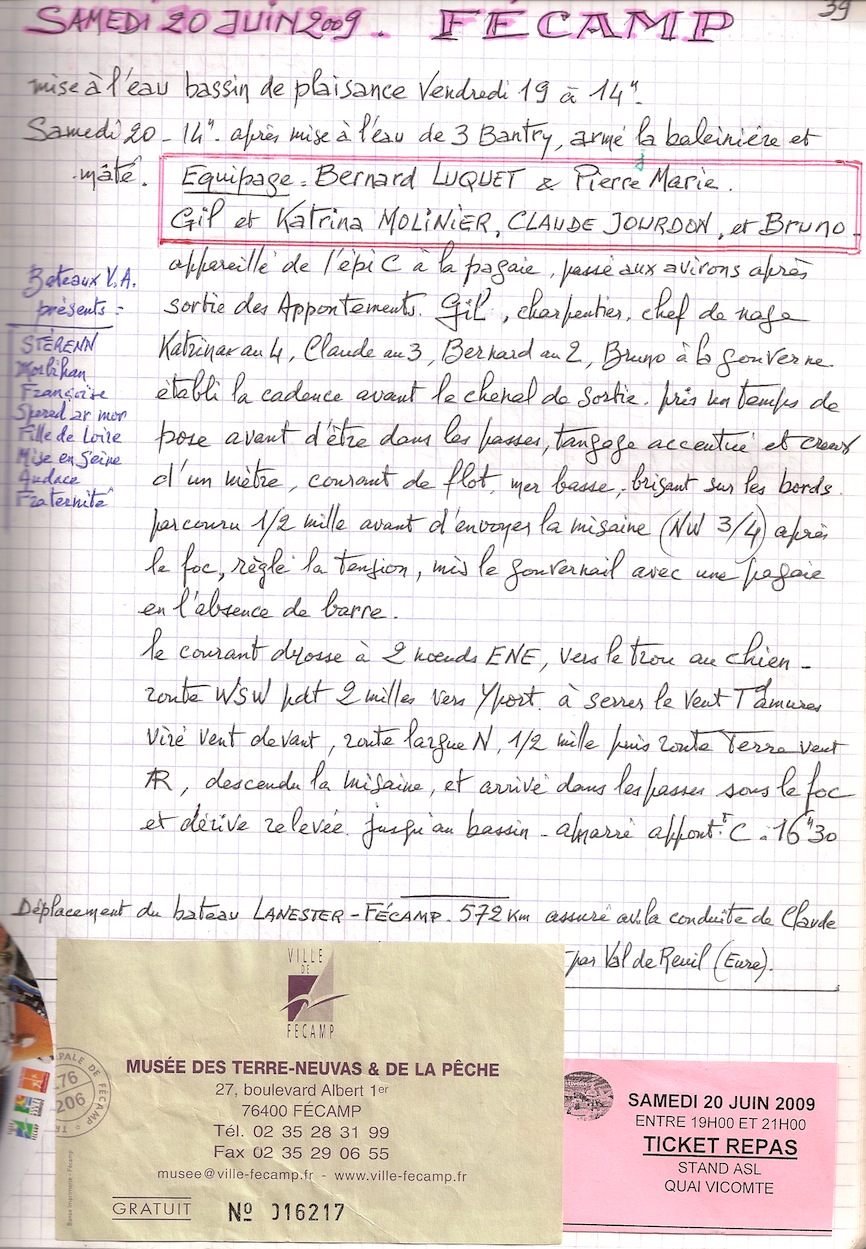 SAMEDI 20 JUIN 2009. FÉCAMP
39
mise à l'eau bassin de plaisance Vendredi 19 à 14h.
Samedi 20 - 14h. après mise à l'eau de 3 Bantry, armé la baleinière et
mâté. Equipage : Bernard LUQUET & Pierre Marie.
Gil et Katrina MOLINIER, CLAUDE JOURDON, et Bruno.
appareillé de l'épi C à la pagaie, passé aux avirons après
sortie des Appontements. Gil, charpentier, chef de nage
Katrina au 4, Claude au 3, Bernard au 2, Bruno à la gouverne.
établi la cadence avant le chenal de sortie. pris un temps de
pose avant d'être dans les passes, tangage accentué et creux
d'un mètre, courant de flot, mer basse, brisant sur les bords.
parcouru 1/2 mille avant d'envoyer la misaine (NW 3/4) après
le foc, règlé la tension, mis le gouvernail avec une pagaie
en l'absence de barre.
le courant drosse à 2 nœuds ENE, vers le trou au chien -
route WSW pdt 2 milles vers Yport. à serrer le vent Td amures
Viré vent devant, route largue N, 1/2 mille puis route Terre vent
AR, descendu la misaine, et arrivé dans les passes sous le foc
et dérive relevée. jusqu'au bassin - amarré appont.t C : 16h30
Bateaux V.A.
présents :
STÉRENN
Morbihan
Françoise
Spered ar mor
Fille de Loire
Mise en Seine
Audace
Fraternité
Déplacement du bateau LANESTER - FÉCAMP. 572 Km assuré av. la conduite de Claude
par Val de Reuil (Eure).
VILLE
DE
FECAMP
MUSÉE DES TERRE-NEUVAS & DE LA PÊCHE
27, boulevard Albert 1er
76400 FÉCAMP
Tél. 02 35 28 31 99
Fax 02 35 29 06 55
musee@ville-fecamp.fr - www.ville-fecamp.fr
GRATUIT No 016217
SAMEDI 20 JUIN 2009
ENTRE 19H00 ET 21H00
TICKET REPAS
STAND ASL
QUAI VICOMTE